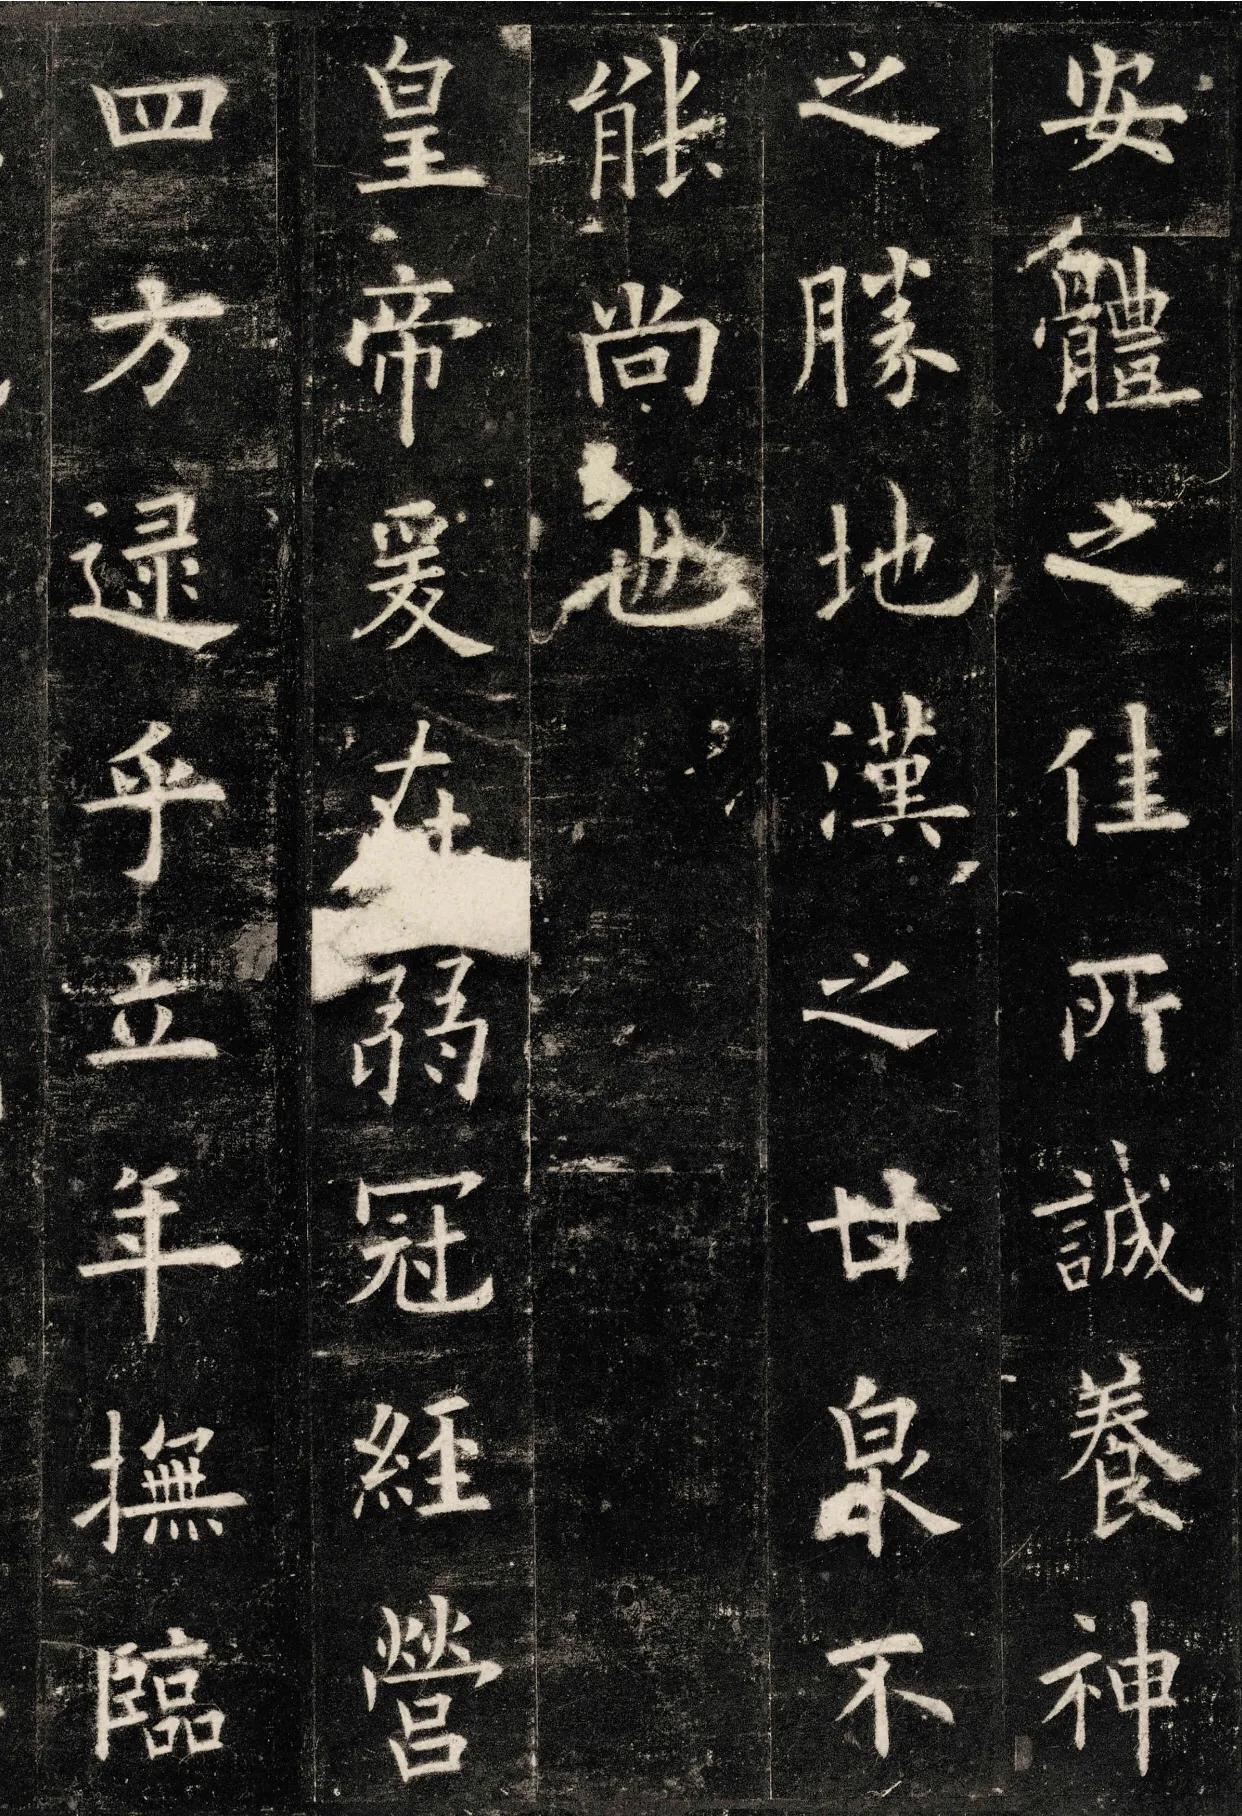 安體之佳所誠養神
之勝地漢之甘泉不
能尚也
皇帝爰在弱冠經營
四方逯乎立年撫臨